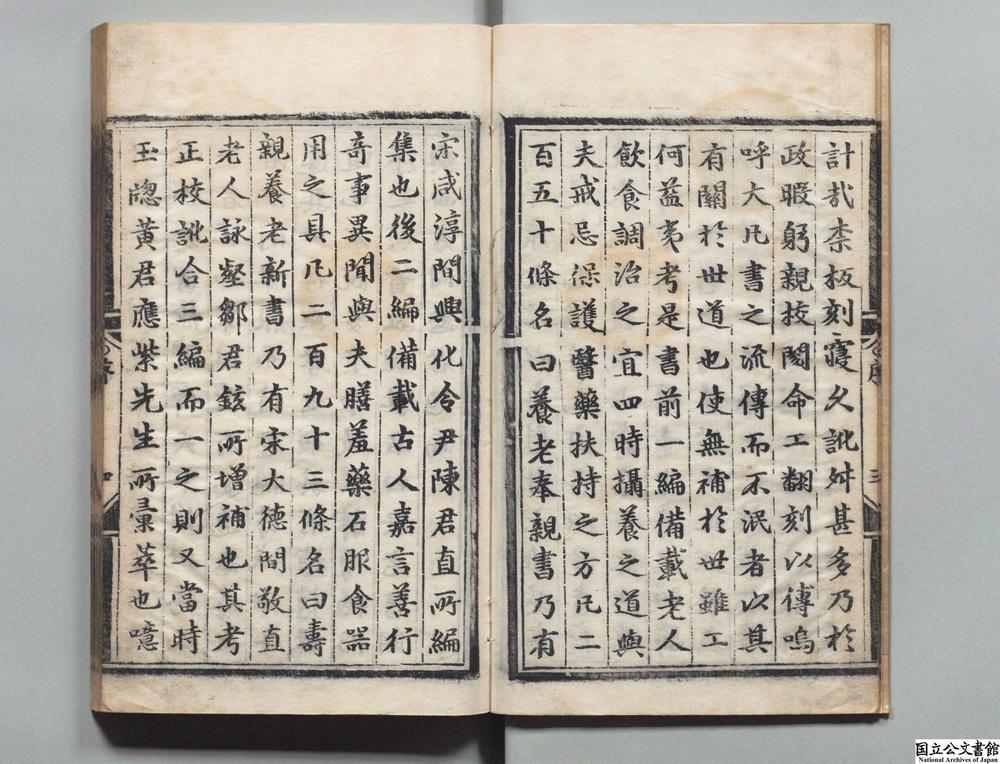 計哉柰板刻寖久訛舛甚多乃於
政暇躬親挍閱命工翻刻以傳嗚
呼大凡書之流傳而不泯者以其
有關於世道也使無補於世雖工
何益夷考是書前一編備載老人
飲食調治之宜四時攝養之道與
夫戒忌保護醫藥扶持之方凡二
百五十條名曰養老奉親書乃有
宋咸淳間興化令尹陳君直所編
集也後二編備載古人嘉言善行
奇事異聞與夫膳羞藥石服食器
用之具凡二百九十三條名曰壽
親養老新書乃有宋大德間敬直
老人詠壑鄒君鉉所增補也其考
正校訛合三編而一之則又當時
玉牕黃君應紫先生所彚萃也噫
序
三
序
四
国立公文書館
National Archives of Japan